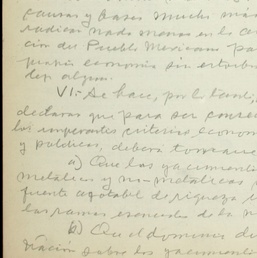 causas y bases mucho más
radica nada menos en la
ción del Pueblo Mexicano pa
economía sin
ley alguna.
VI.- Se hace, por lo tanto,
declarar que para ser
los imperantes criterios, econom
y jurídicos, deberá tomarse
a) Que los yacimientos
metálicos y no-metálicos
fuente agotable de riqueza
las ramas esenciales de la
b) Que el dominio de
nación sobre los yacimientos